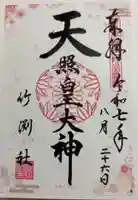 奉拝
令和七年
八月二十六日
天照皇大神
竹渕社